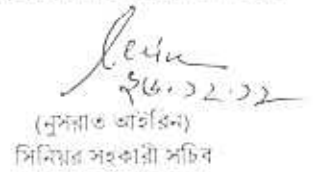 ২৬.১২.২২
(নুসরাত আইরিন)
সিনিয়র সহকারী সচিব